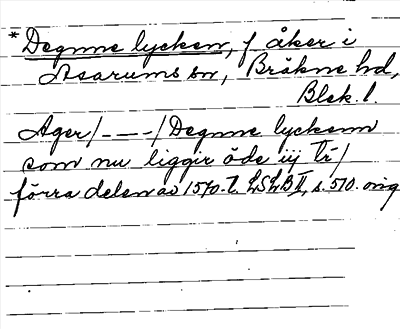 *Degnne lycken, f åker i
Asarums sn, Bräkne hd,
Blek. l.
Ager/----/Degnne lyckenn
som nu liggir öde iij Tr/
förra delen av 1570-t. LSLB II, s. 510. orig